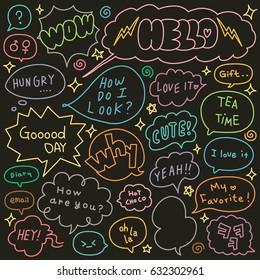 ?
WOW
HELLO
♀♂
HUNGRY....
HOW
DO I
LOOK?
LOVE IT♥
Gift..
TEA
TIME
Gooood
DAY
Why
CUTE!
I love it
Diary
How
are you?
HOT
CHOCO
YEAH!!
My
Favorite!
email
HEY!
oh la
la
632302961